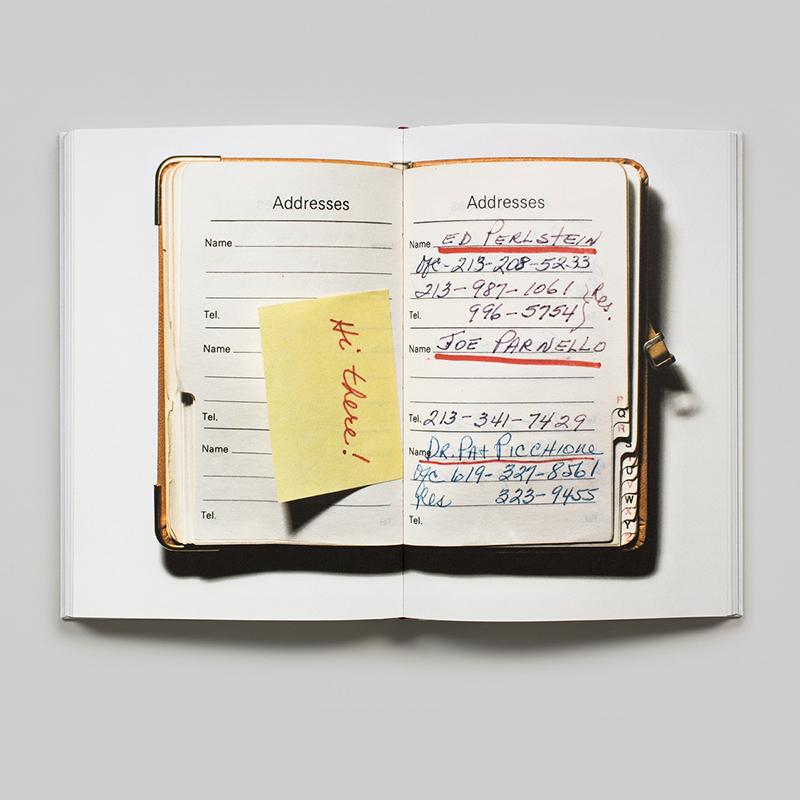 Addresses
Name
Tel.
Name
Tel.
Name
Tel.
Hi there!
Addresses
Name ED PERLSTEIN
Ofc-213-208-5233
213-987-1061 } Res.
Tel. 996-5754
Name JOE PARNELLO
Tel. 213-341-7429
Name DR. PAT PICCHIONE
Ofc 619-327-8561
Res 323-9455
Tel.
P
Q
R
U
W
Y